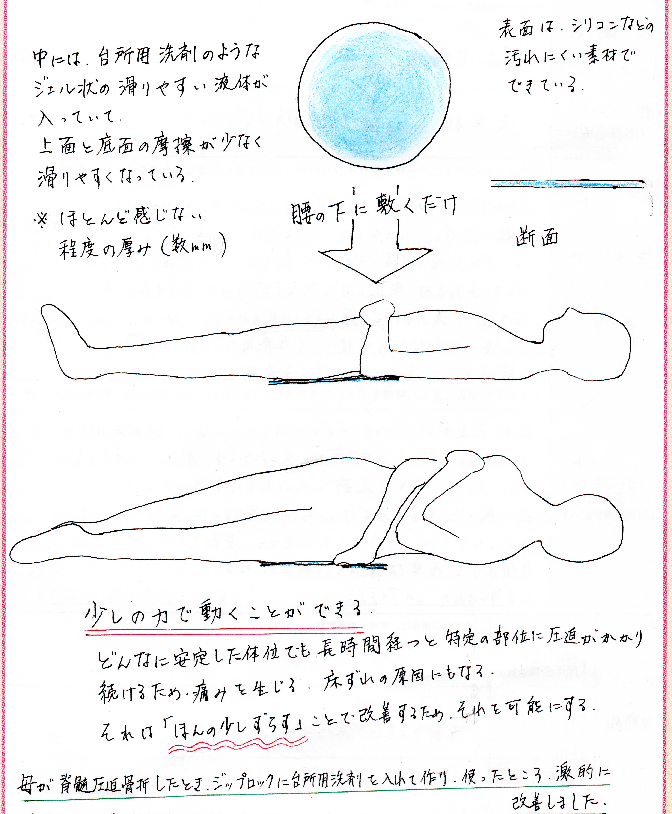 中には、台所用洗剤のような
ジェル状の滑りやすい液体が
入っていて、
上面と底面の摩擦が少なく
滑りやすくなっている。
※ ほとんど感じない
程度の厚み(数mm)
表面は、シリコンなどの
汚れにくい素材で
できている。
腰の下に敷くだけ
断面
少しの力で動くことができる。
どんなに安定した体位でも長時間経つと特定の部位に圧迫がかかり
続けるため、痛みを生じる。床ずれの原因にもなる。
それは「ほんの少しずらす」ことで改善するため、それを可能にする。
母が脊髄圧迫骨折したとき、ジップロックに台所用洗剤を入れて作り、使ったところ、激的に
改善しました。